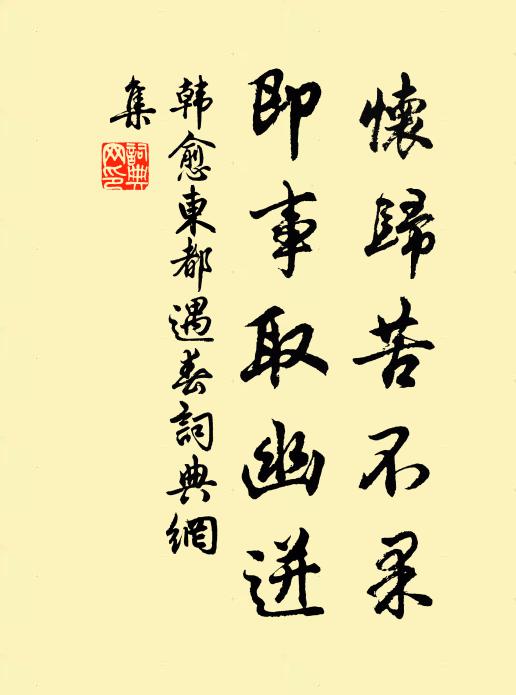 懷歸苦不果
即事取幽迸
韓愈東都遇春詞典網
集
詞典網印